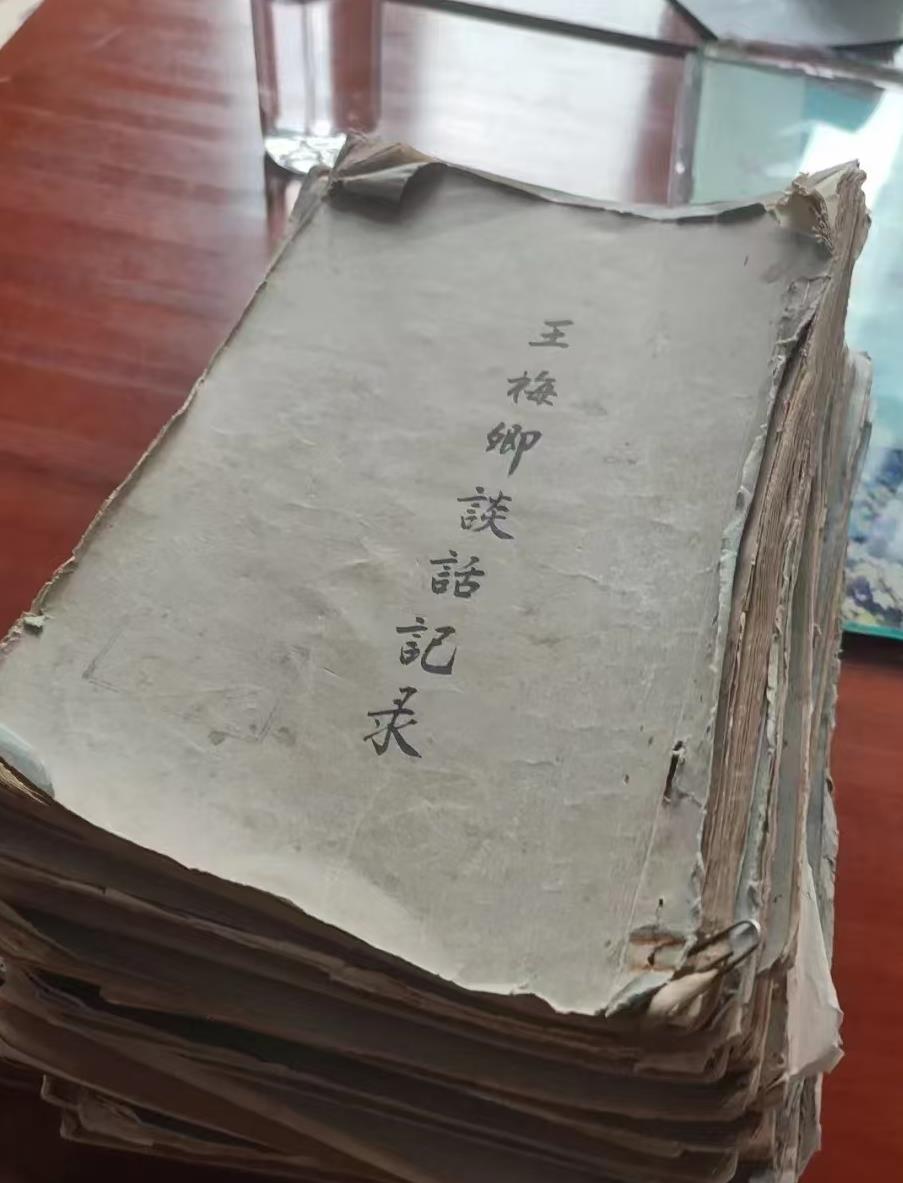 王梅卿談話記录